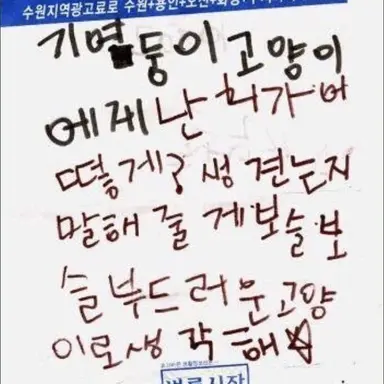 수원지역광고료로 수원+용인+오산+화성
기엽둥이고양이
에게난회가어
떻게?생견는지
말해줄게보슬보
슬부드러운고양
이로생각해☆
벼룩시장